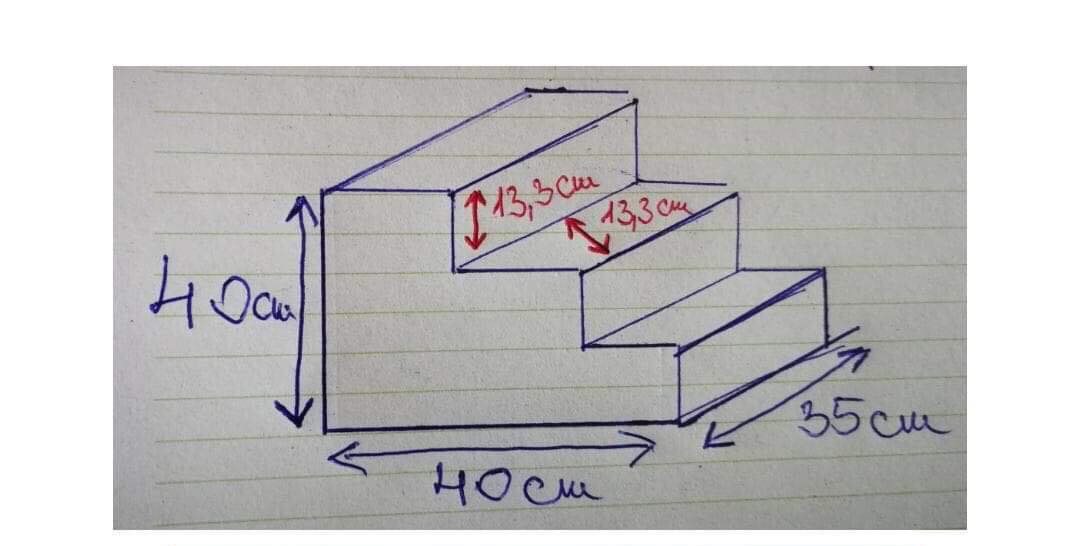 13,3cm
13,3cm
40cm
35cm
40cm